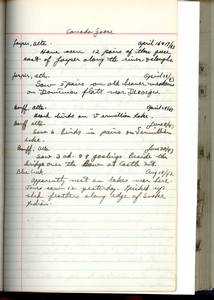 Canada Goose
Jasper, Alta. April 16+17/43
Have seen 12 pairs of these geese
east of Jasper along the river & sloughs
Jasper, Alta. April
Saw 5 pairs on old beaver meadows
on Dominion flats near
Banff, Alta. April
birds on Vermilion lake.
Banff, Alta. June
Saw 6 birds in pairs on Vermilion
Lake.
Banff, Alta. June
Saw 3 ad. & 9 goslings beside the
bridge over the Bow at Castle Mt.
Aug
Apparently nest on lakes near here
saw 10 yesterday. Picked up
feathers along edge of